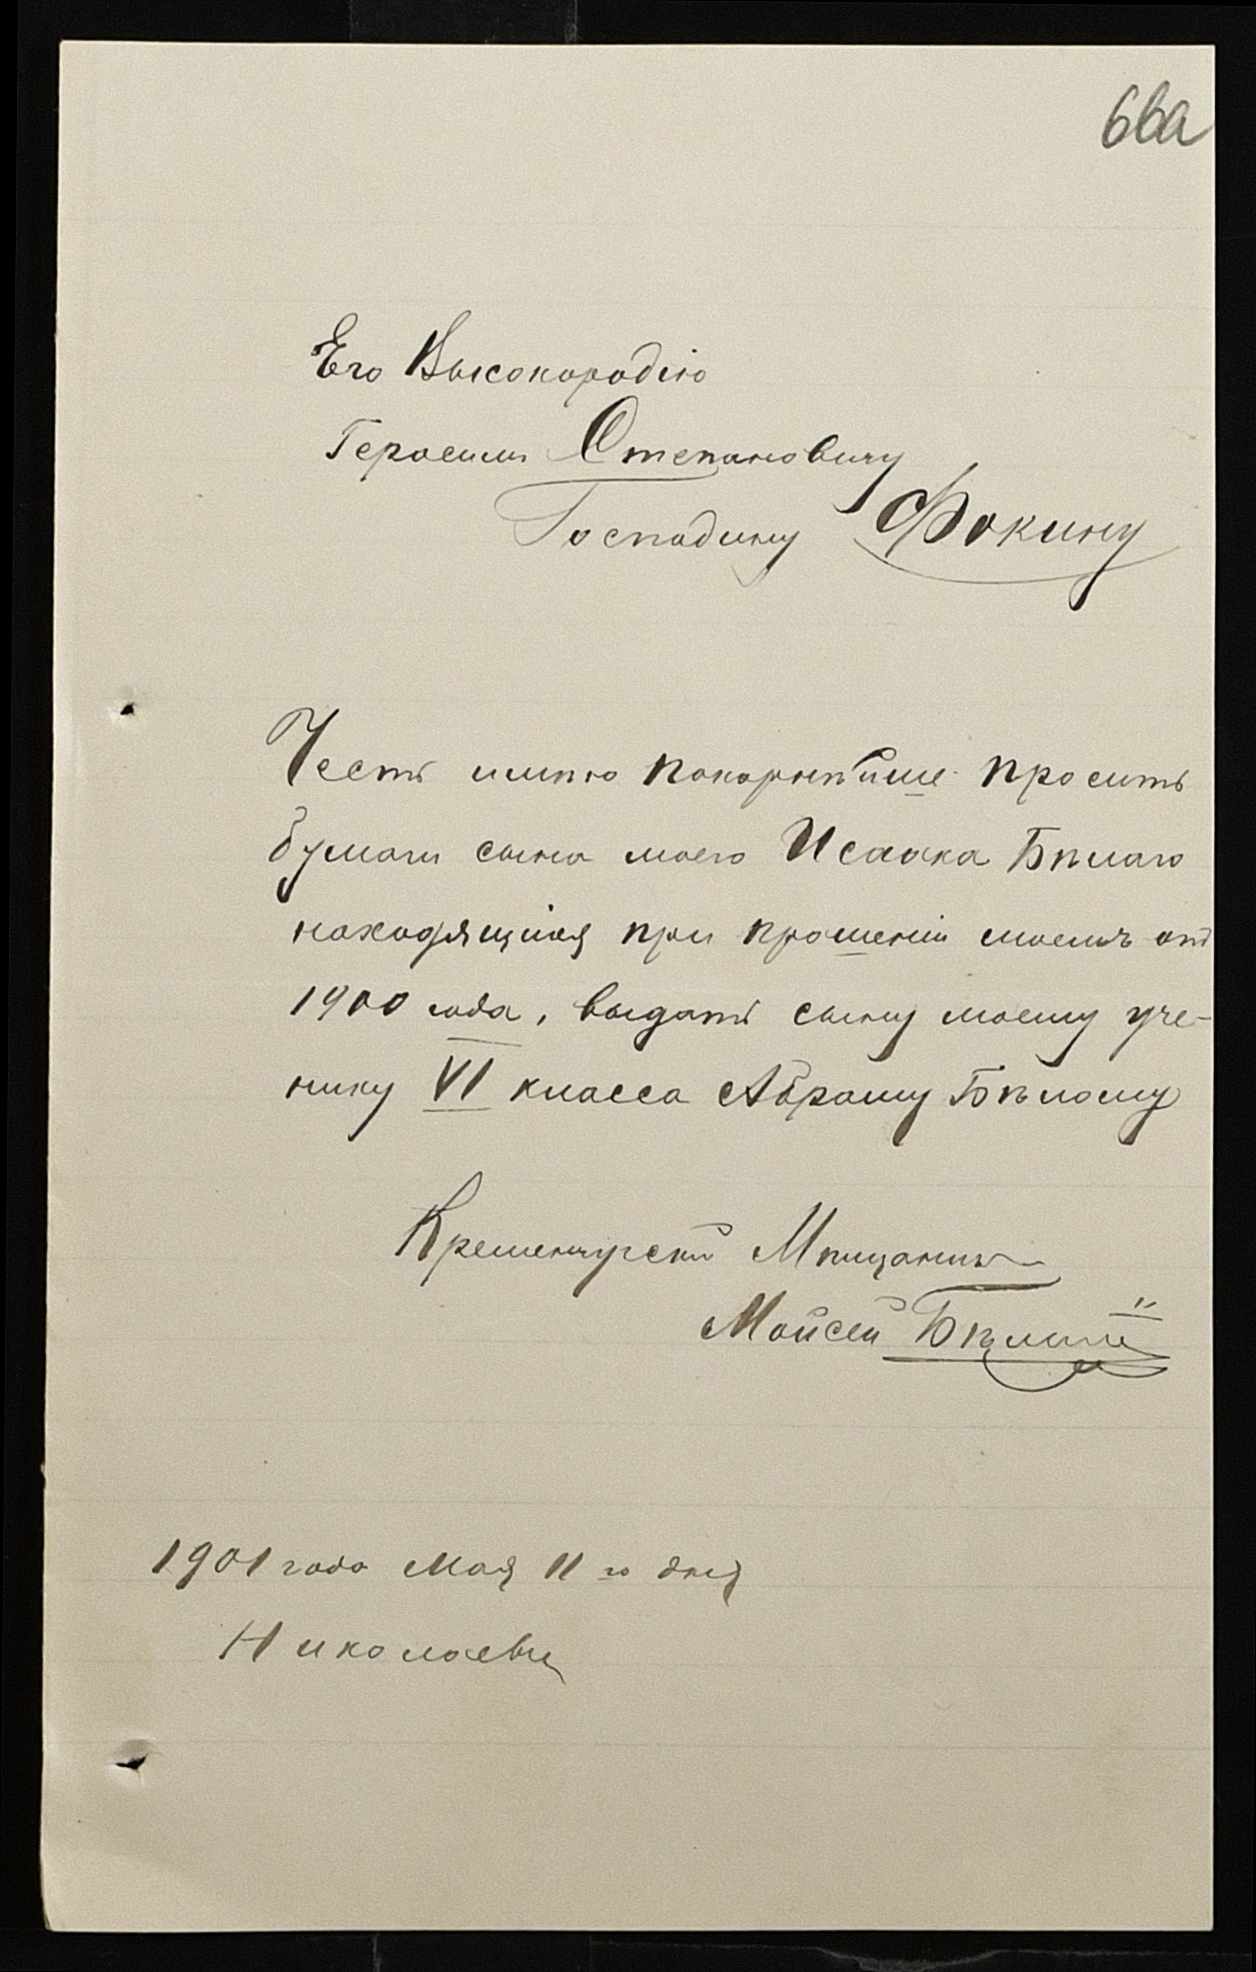 66а
Его Высокородію
Герасиму Степановичу
Господину Фокину
Честь имѣю покорнѣйше просить
бумаги сына моего Исаака Бѣлаго
находящіяся при прошеніи моемъ отъ
1900 года, выдать сыну моему уче-
нику VI класса Абраму Бѣлому
Кременчугскій Мѣщанинъ
Мойсей Бѣлый
1901 года Мая 11 го дня
Николаевъ